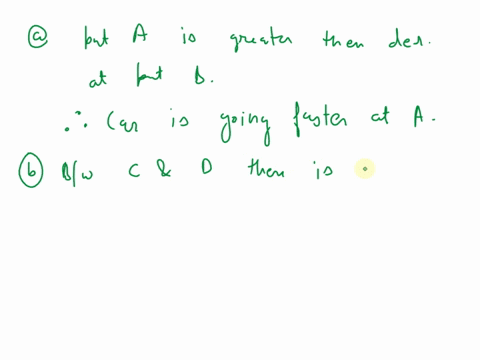 ⓐ put A is greater then der.
at put B.
∴ Car is going faster at A.
ⓑ B/w C & D then is